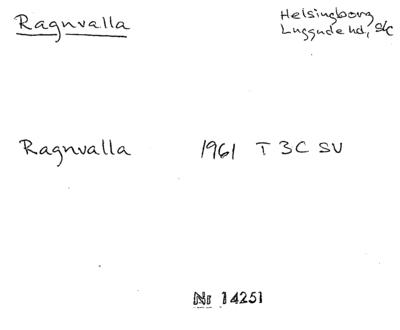 Ragnvalla
Helsingborg
Luggude hd, Sk
Ragnvalla 1961 T 3C SV
Nr 14251